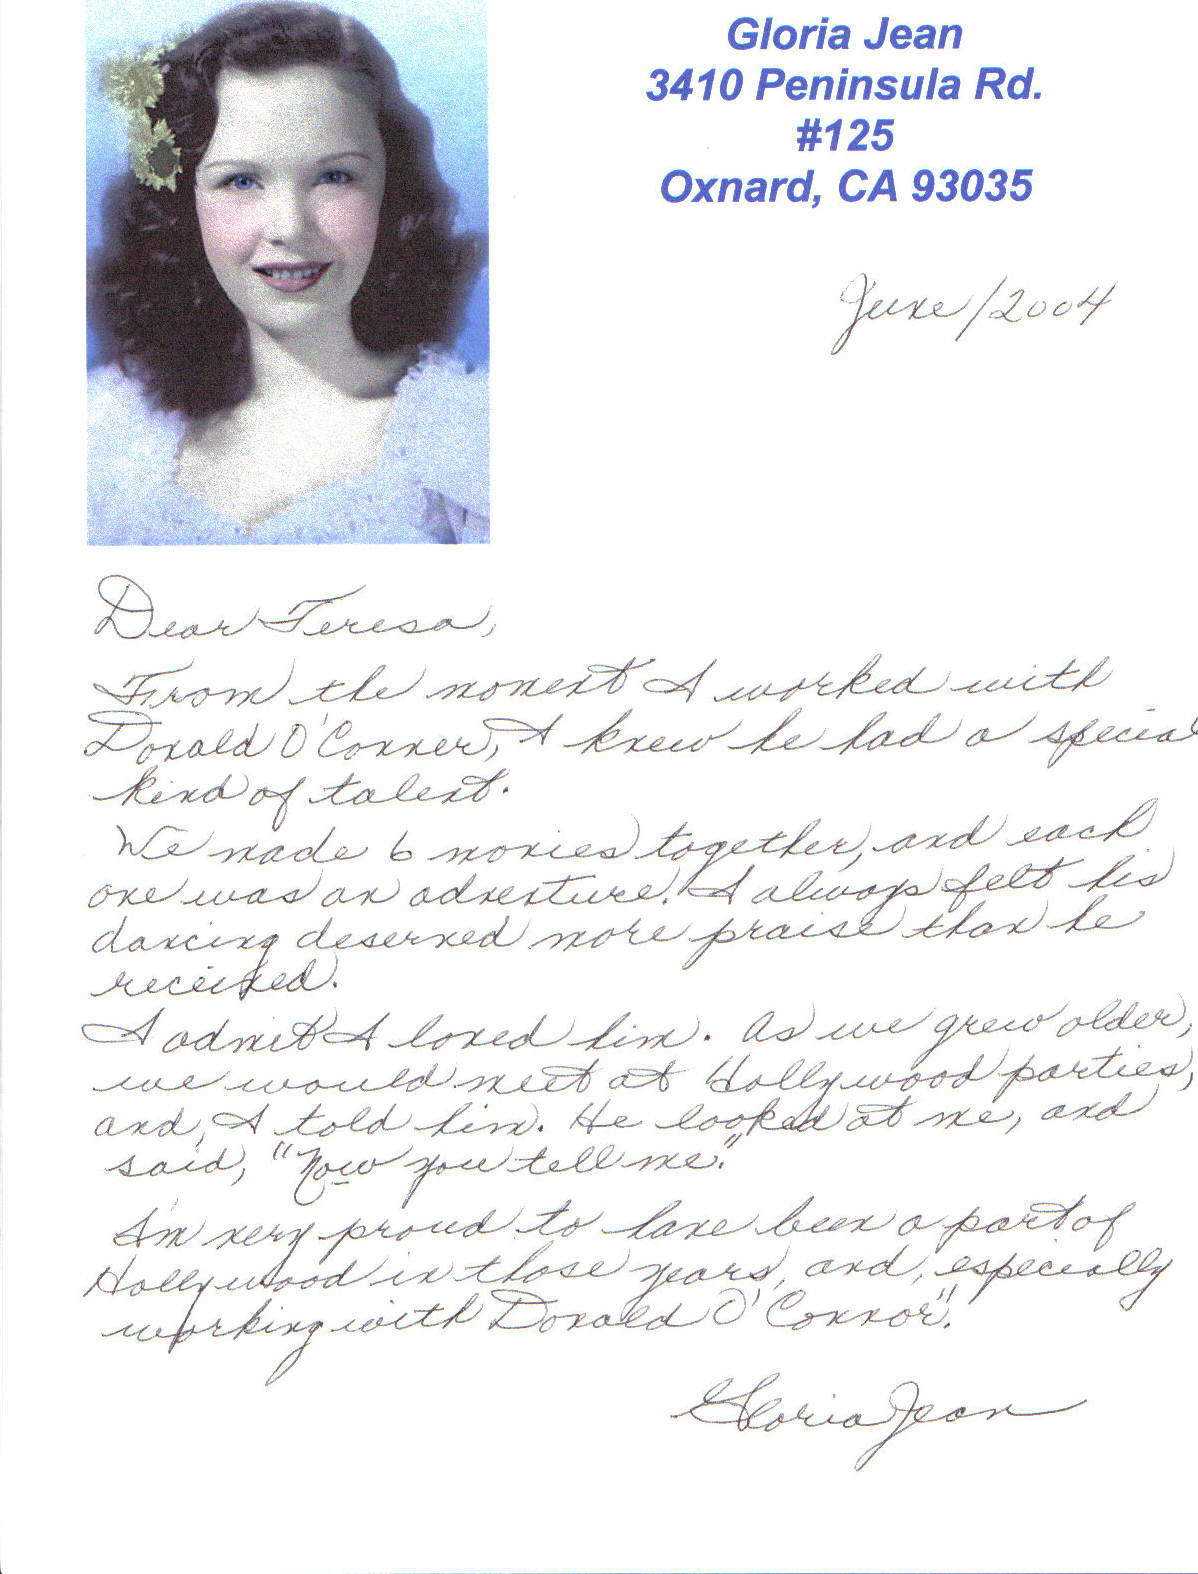 Gloria Jean
3410 Peninsula Rd.
#125
Oxnard, CA 93035
June/2004
Dear Teresa,
From the moment I worked with
Donald O'Conner, I knew he had a special
kind of talent.
We made 6 movies together, and each
one was an adventure. I always felt his
dancing deserved more praise than he
received.
I admit I loved him. As we grew older,
we would meet at Hollywood parties,
and, I told him. He looked at me, and
said, "Now you tell me."
I'm very proud to have been a part of
Hollywood in those years, and, especially
working with Donald O'Connor".
Gloria Jean